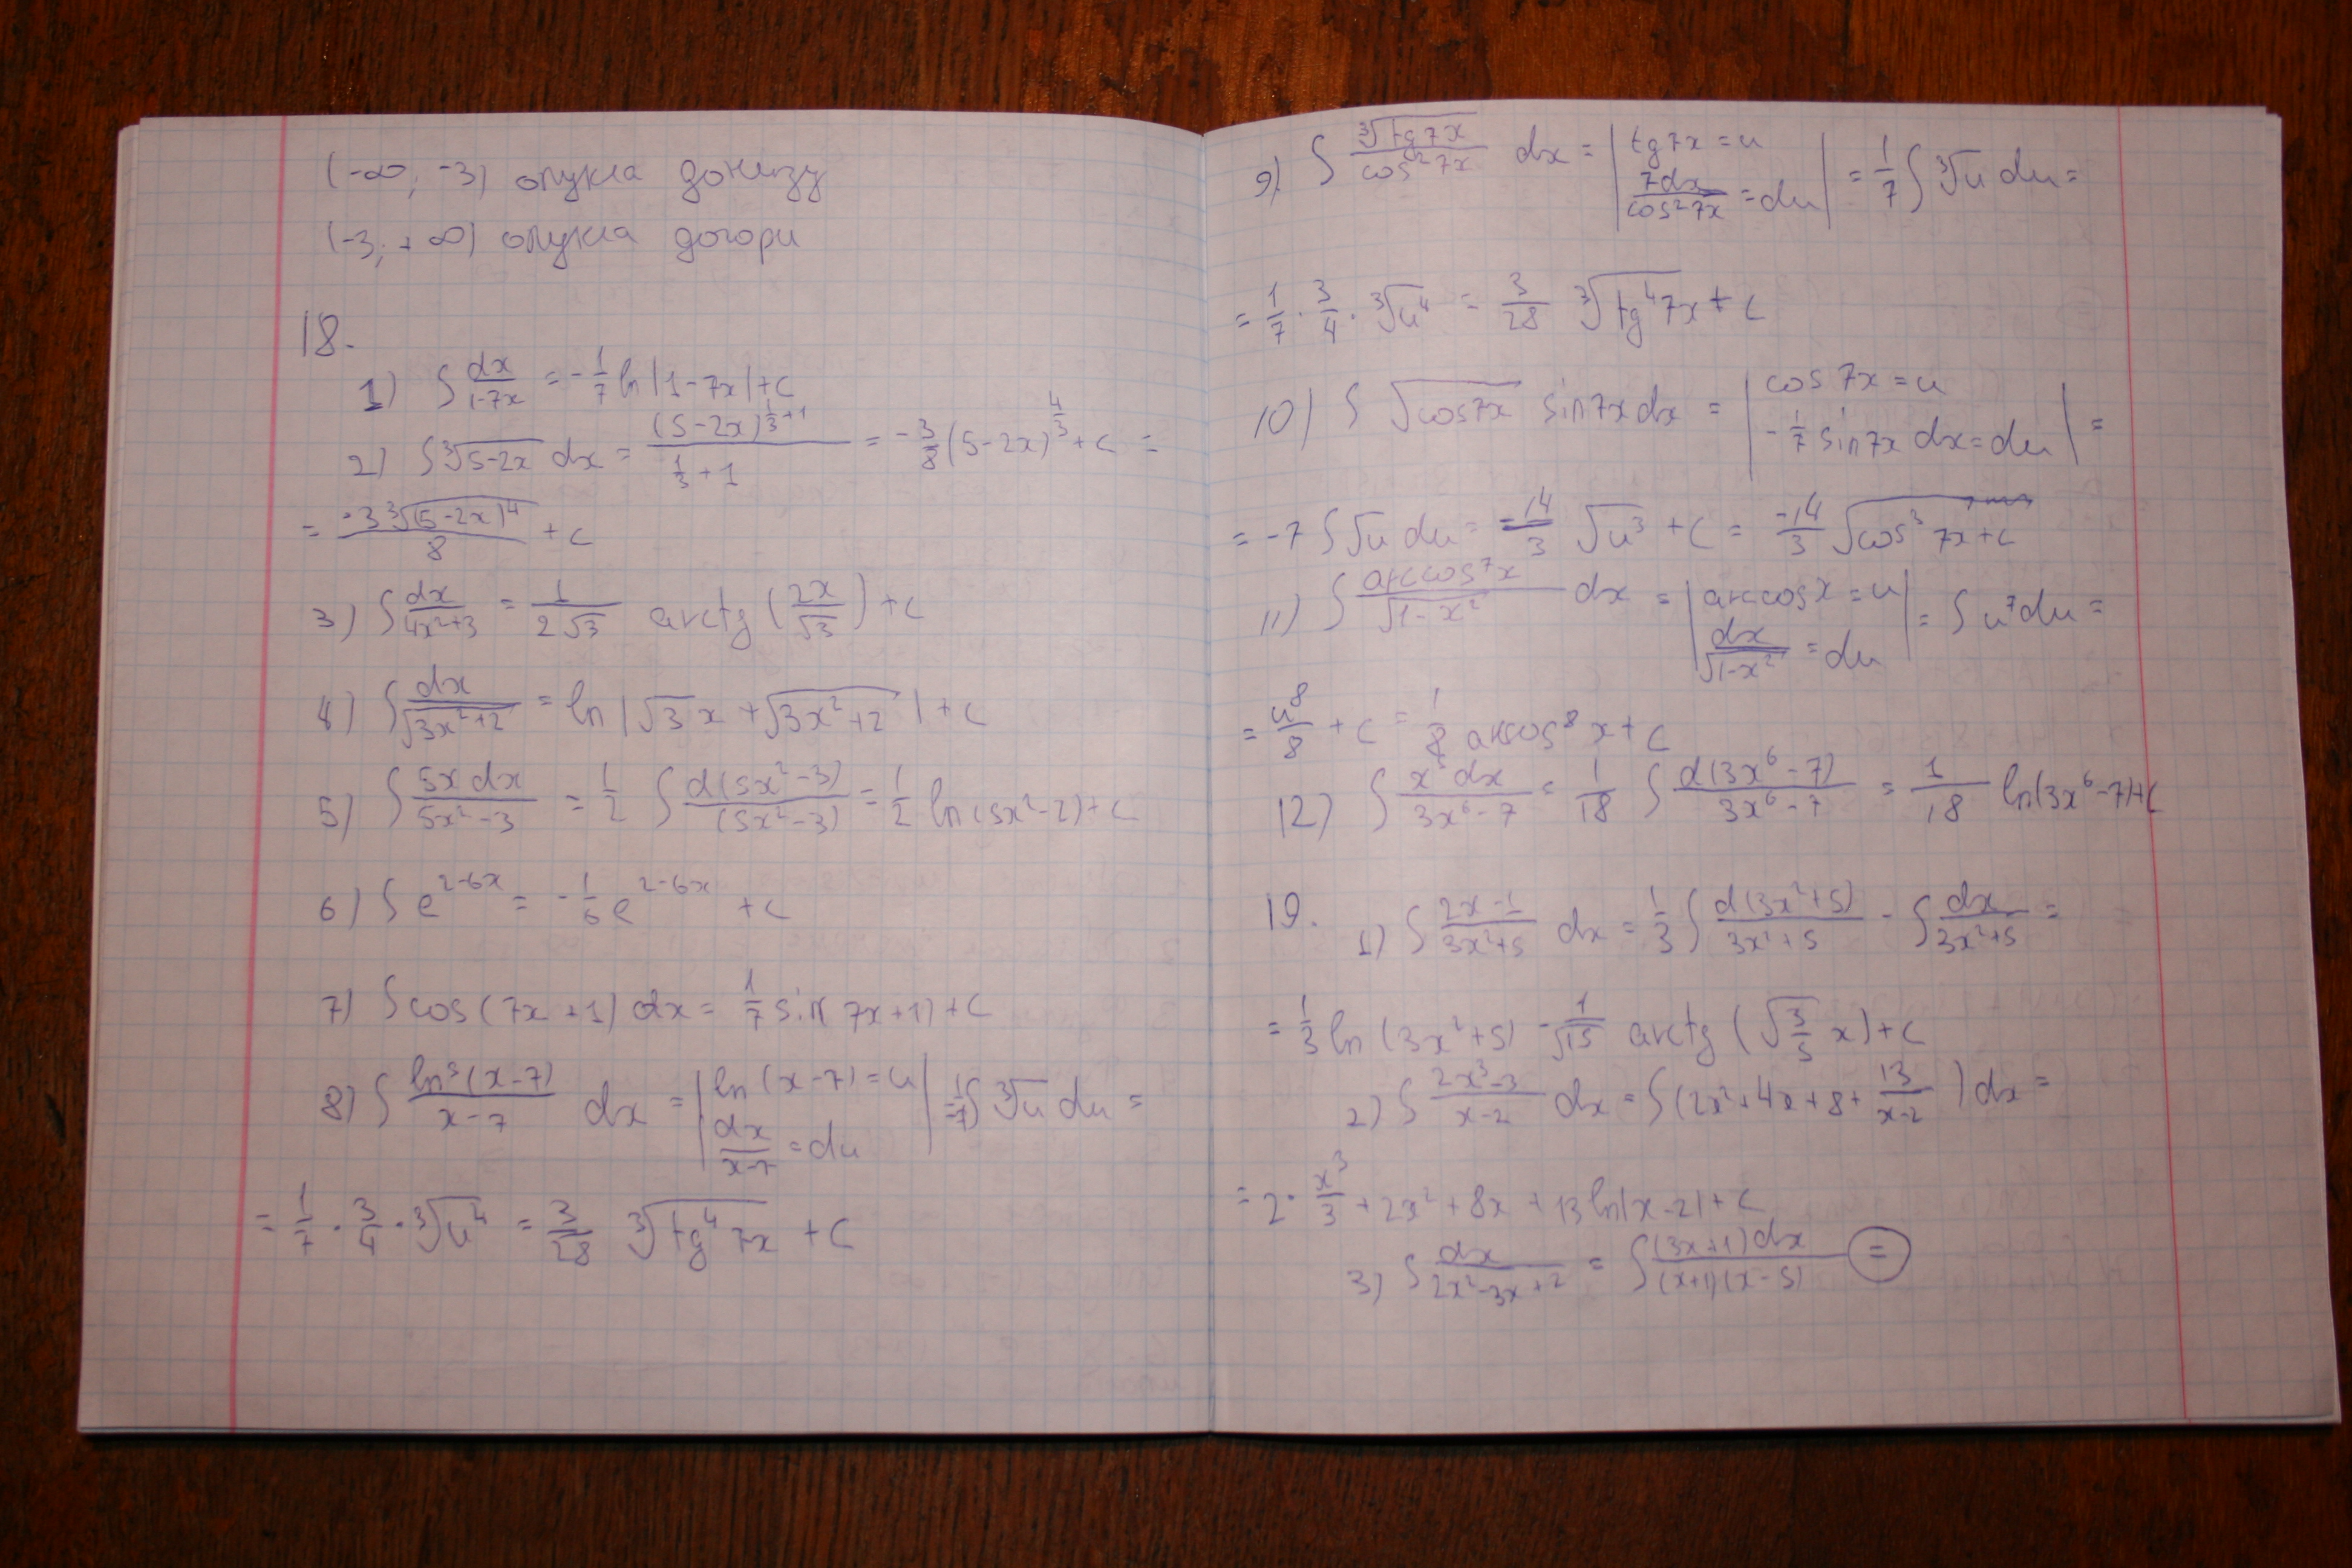 (-∞; -3) опукла донизу
(-3; +∞) опукла догори
18.
1) ∫ dx/(1-7x) = -1/7 ln|1-7x|+c
2) ∫ ∛(5-2x) dx = (5-2x)^(1/3+1)/(1/3+1) = -3/8 (5-2x)^(4/3) + c =
= -3∛((5-2x)^4)/8 + c
3) ∫ dx/(4x²+3) = 1/(2√3) arctg (2x/√3) + c
4) ∫ dx/√(3x²+2) = ln |√3 x + √(3x²+2)| + c
5) ∫ 5x dx/(5x²-3) = 1/2 ∫ d(5x²-3)/(5x²-3) = 1/2 ln(5x²-2)+c
6) ∫ e^(2-6x) = -1/6 e^(2-6x) + c
7) ∫ cos(7x+1) dx = 1/7 sin(7x+1)+c
8) ∫ ln³(x-7)/(x-7) dx = | ln(x-7)=u ; dx/(x-7) = du | = 1/7 ∫ ∛u du =
= 1/7 · 3/4 · ∛(u⁴) = 3/28 ∛(tg⁴ 7x) + c
9) ∫ ∛(tg7x)/cos²7x dx = | tg7x = u ; 7dx/cos²7x = du | = 1/7 ∫ ∛u du =
= 1/7 · 3/4 · ∛(u⁴) = 3/28 ∛(tg⁴7x) + c
10) ∫ √(cos7x) sin7x dx = | cos 7x = u ; -1/7 sin7x dx = du | =
= -7 ∫ √u du = -14/3 √(u³) + c = -14/3 √(cos³ 7x) + c
11) ∫ arccos⁷x/√(1-x²) dx = | arccosx = u ; dx/√(1-x²) = du | = ∫ u⁷ du =
= u⁸/8 + c = 1/8 arccos⁸ x + c
12) ∫ x⁵ dx/(3x⁶-7) = 1/18 ∫ d(3x⁶-7)/(3x⁶-7) = 1/18 ln(3x⁶-7)+c
19.
1) ∫ (2x-1)/(3x²+5) dx = 1/3 ∫ d(3x²+5)/(3x²+5) - ∫ dx/(3x²+5) =
= 1/3 ln (3x²+5) - 1/√15 arctg (√(3/5) x) + c
2) ∫ (2x³-3)/(x-2) dx = ∫ (2x²+4x+8+ 13/(x-2)) dx =
= 2· x³/3 + 2x² + 8x + 13 ln|x-2|+c
3) ∫ dx/(2x²-3x+2) = ∫ (3x+1)dx/((x+1)(x-5)) =